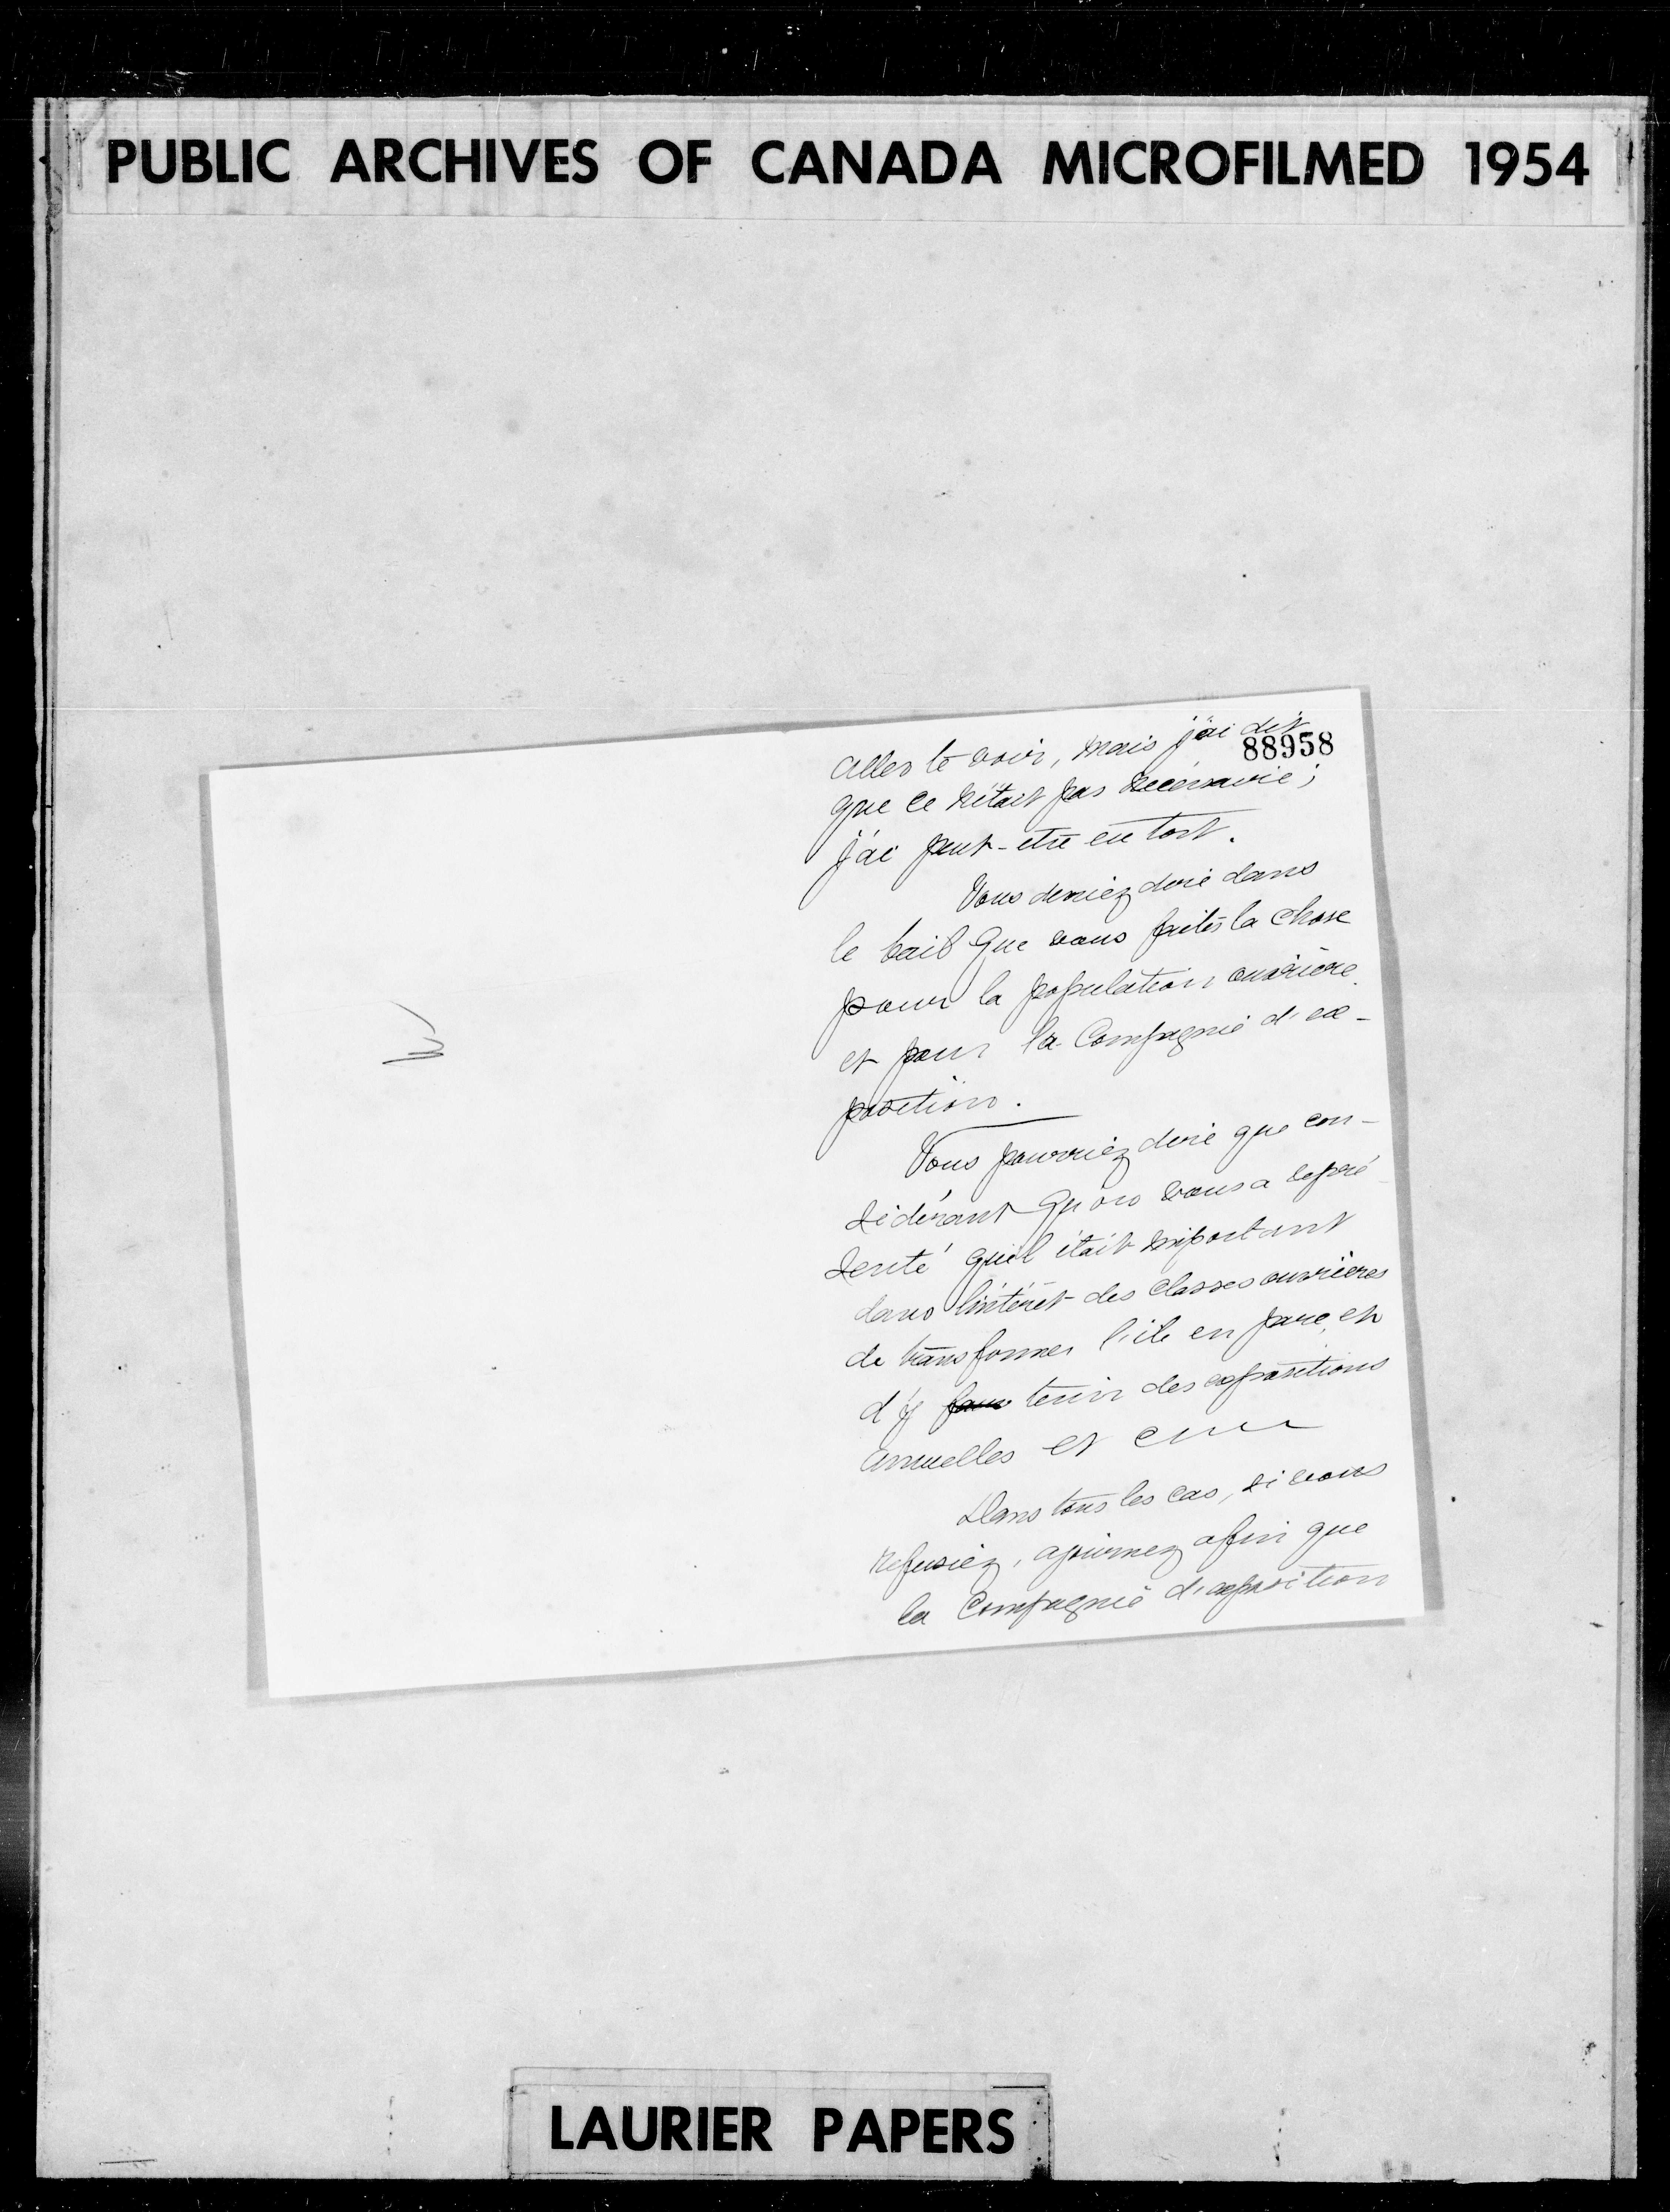 PUBLIC ARCHIVES OF CANADA MICROFILMED 1954
88958
aller le voir, mais j'ai dit
que ce n'était pas nécessaire ;
j'ai peut-etre eu tort.
Vous devriez dire dans
le bail que vous faites la chose
pour la population ouvrière
et pour la Compagnie d'ex-
position.
Vous pourriez dire que con-
sidérant qu'on vous a repré
senté qu'il était important
dans l'intérêt des classes ouvrières
de transformer l'ile en parc, et
d'y tenir des expositions
annuelles et
Dans tous les cas, si vous
refusiez, ajournez afin que
la Compagnie d'exposition
LAURIER PAPERS